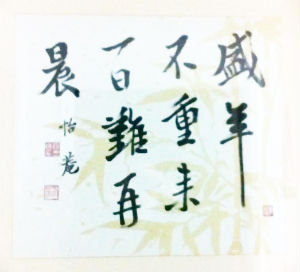 盛年
不重来
一日難再
晨
怡菴